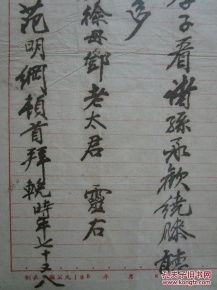 孝子看對孫承歡繞膝
多
徐母鄧老太君 靈右
范明綱頓首拜輓時年七十又八